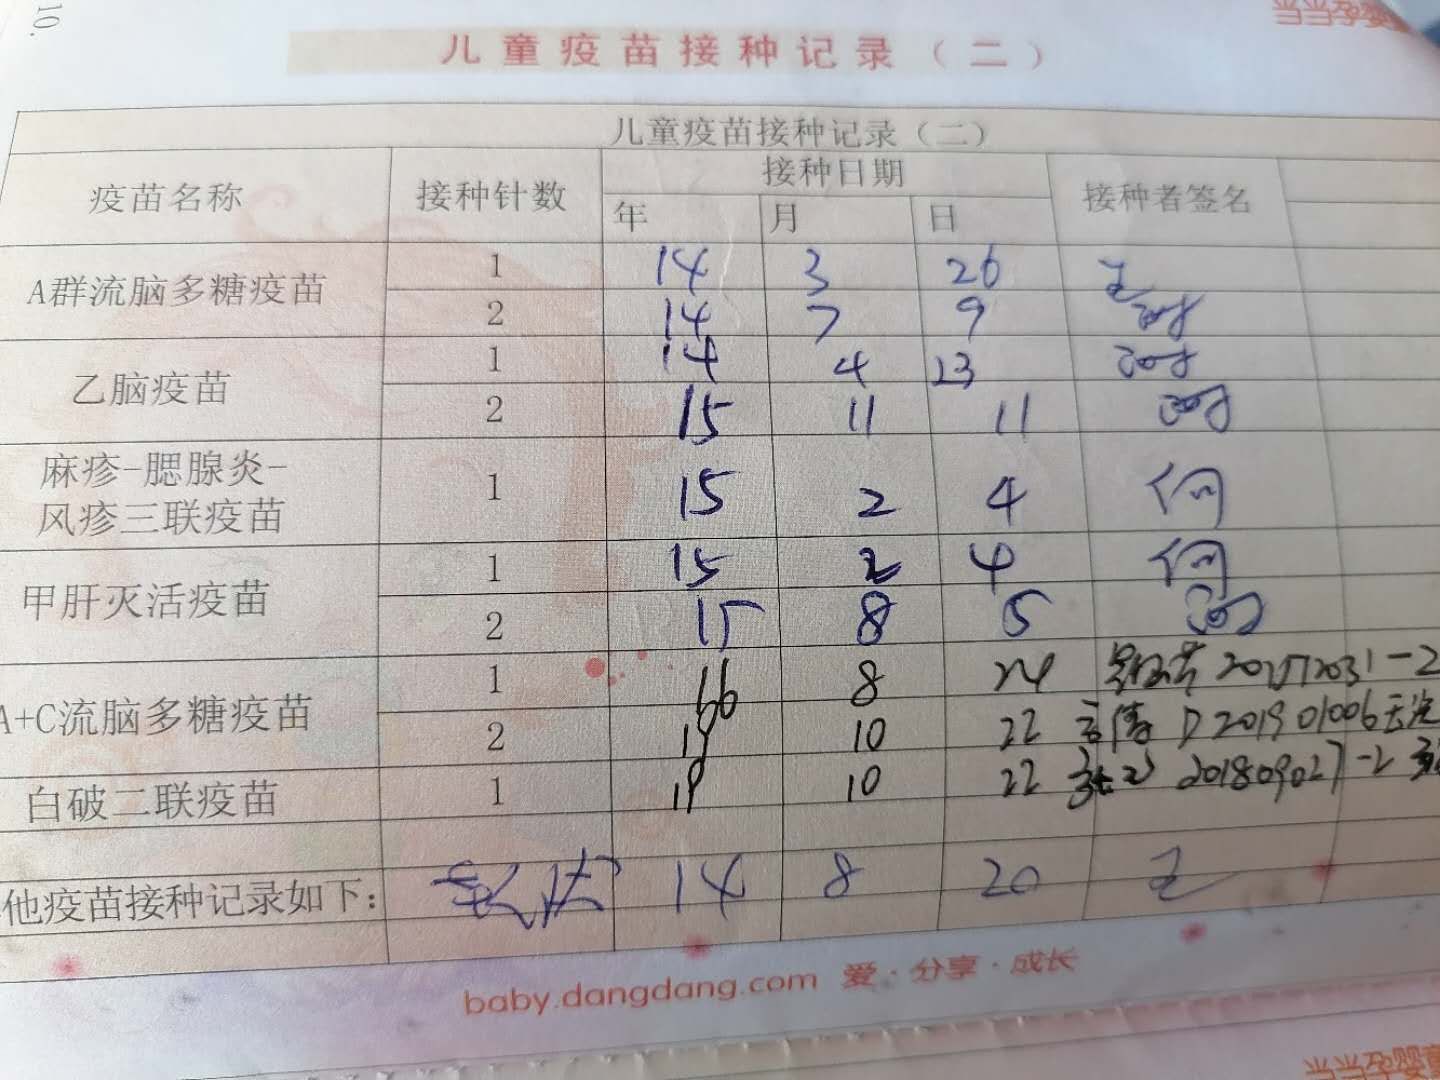 10.
当当孕婴
儿童疫苗接种记录（二）
儿童疫苗接种记录（二）
疫苗名称 接种针数 接种日期 接种者签名
年 月 日
A群流脑多糖疫苗 1 14 3 26 王
2 14 7 9
乙脑疫苗 1 14 4 23
2 15 11 11
麻疹-腮腺炎-
风疹三联疫苗 1 15 2 4 何
甲肝灭活疫苗 1 15 2 4 何
2 15 8 5
A+C流脑多糖疫苗 1 16 8 24
2 19 10 22 D201901006
白破二联疫苗 1 19 10 22 201809027-2
他疫苗接种记录如下： 14 8 20 王
baby.dangdang.com 爱·分享·成长
当当孕婴童